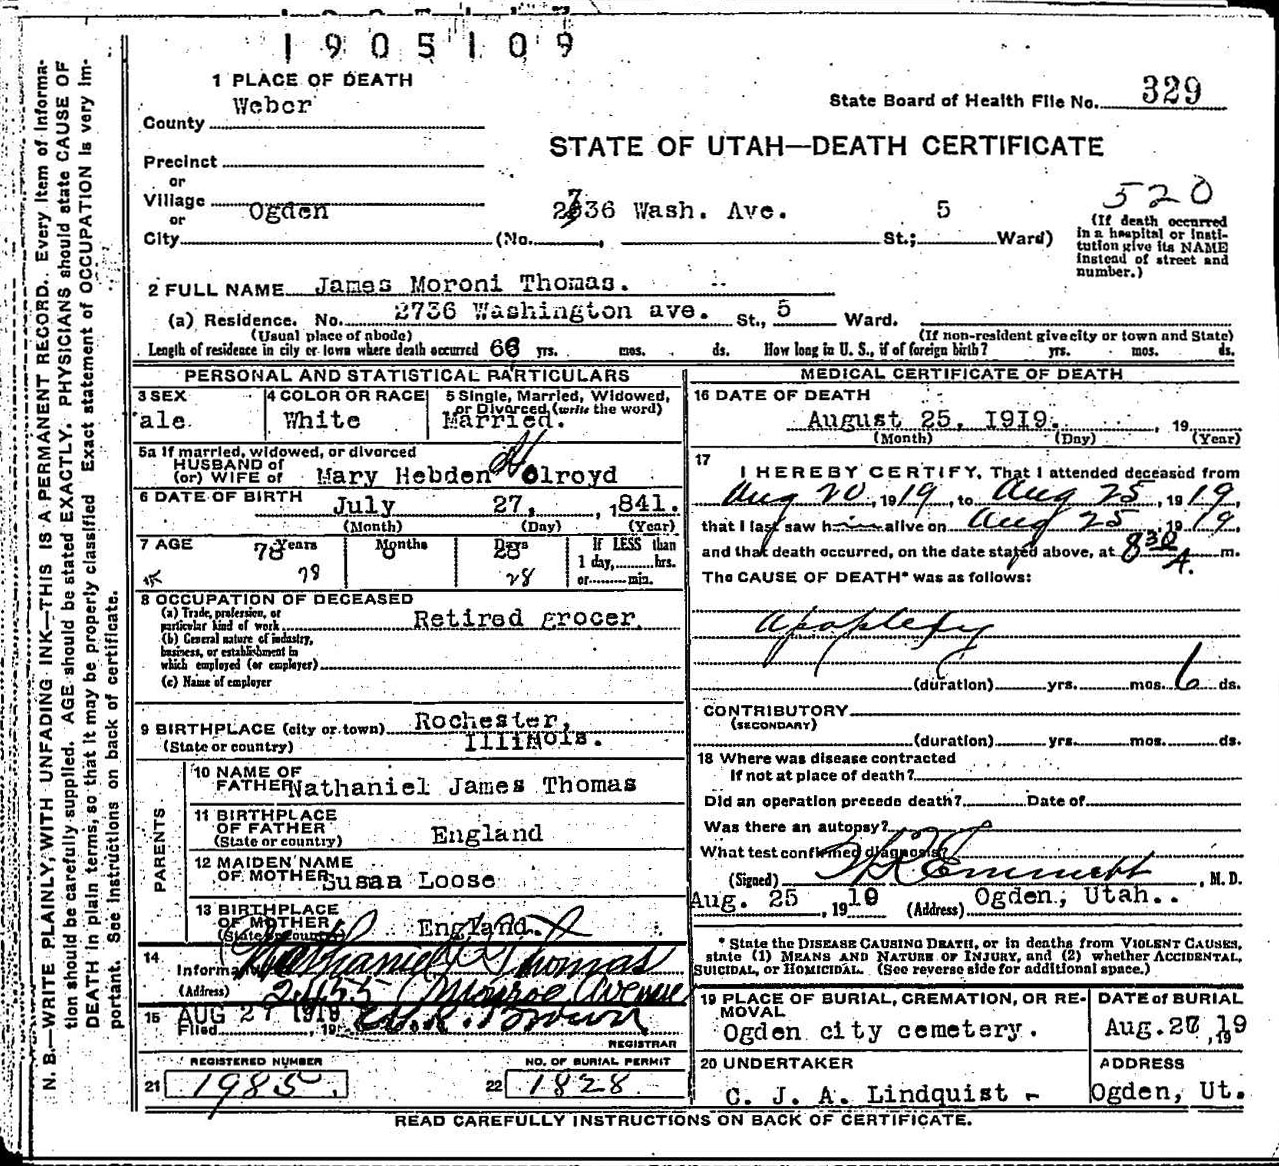 1905109
1 PLACE OF DEATH
Weber
County
State Board of Health File No. 329
STATE OF UTAH—DEATH CERTIFICATE
Precinct
or
Village
or
Ogden
City
2736 Wash. Ave.
(No. , St.; 5 Ward)
520
(If death occurred
in a hospital or insti-
tution give its NAME
instead of street and
number.)
2 FULL NAME James Moroni Thomas.
(a) Residence. No. 2736 Washington ave. St., 5 Ward.
(Usual place of abode) (If non-resident give city or town and State)
Length of residence in city or town where death occurred 66 yrs. mos. ds. How long in U. S., if of foreign birth? yrs. mos. ds.
PERSONAL AND STATISTICAL PARTICULARS
3 SEX
ale
4 COLOR OR RACE
White
5 Single, Married, Widowed,
or Divorced (write the word)
Married.
5a If married, widowed, or divorced
HUSBAND of
(or) WIFE of Mary Hebden Holroyd
6 DATE OF BIRTH
July 27, , 1841.
(Month) (Day) (Year)
7 AGE
78 Years Months 28 Days
78 28
If LESS than
1 day, hrs.
or min.
8 OCCUPATION OF DECEASED
(a) Trade, profession, or
particular kind of work Retired grocer.
(b) General nature of industry,
business, or establishment in
which employed (or employer)
(c) Name of employer
9 BIRTHPLACE (city or town) Rochester,
(State or country) Illinois.
PARENTS
10 NAME OF
FATHER Nathaniel James Thomas
11 BIRTHPLACE
OF FATHER
(State or country) England
12 MAIDEN NAME
OF MOTHER Susan Loose
13 BIRTHPLACE
OF MOTHER
(State or country) England.
14
Informant Nathaniel J. Thomas
(Address) 2455 Monroe Avenue
15 AUG 27 1919
Filed , 19
REGISTRAR
REGISTERED NUMBER
21 1985
NO. OF BURIAL PERMIT
22 1828
MEDICAL CERTIFICATE OF DEATH
16 DATE OF DEATH
August 25, 1919. , 19
(Month) (Day) (Year)
17
I HEREBY CERTIFY, That I attended deceased from
Aug 20, 1919, to Aug 25, 1919,
that I last saw him alive on Aug 25, 1919,
and that death occurred, on the date stated above, at 830 A. m.
The CAUSE OF DEATH* was as follows:
Apoplexy
(duration) yrs. mos. 6 ds.
CONTRIBUTORY
(SECONDARY)
(duration) yrs. mos. ds.
18 Where was disease contracted
If not at place of death?
Did an operation precede death? Date of
Was there an autopsy?
What test confirmed diagnosis?
(Signed) Emmett , M. D.
Aug. 25 , 1919 (Address) Ogden, Utah..
* State the DISEASE CAUSING DEATH, or in deaths from VIOLENT CAUSES,
state (1) MEANS AND NATURE OF INJURY, and (2) whether ACCIDENTAL,
SUICIDAL, or HOMICIDAL. (See reverse side for additional space.)
19 PLACE OF BURIAL, CREMATION, OR RE-
MOVAL
Ogden city cemetery.
DATE of BURIAL
Aug. 27, 1919
20 UNDERTAKER
C. J. A. Lindquist -
ADDRESS
Ogden, Ut.
READ CAREFULLY INSTRUCTIONS ON BACK OF CERTIFICATE.
N. B.—WRITE PLAINLY, WITH UNFADING INK—THIS IS A PERMANENT RECORD. Every item of informa-
tion should be carefully supplied. AGE should be stated EXACTLY. PHYSICIANS should state CAUSE OF
DEATH in plain terms, so that it may be properly classified. Exact statement of OCCUPATION is very im-
portant. See instructions on back of certificate.